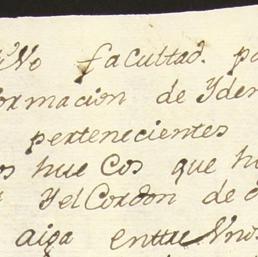 No facultad. p
ormacion de Yden
pertenecientes
os hue Cos que h
Yel Cordon de
aiga enttre Vnos